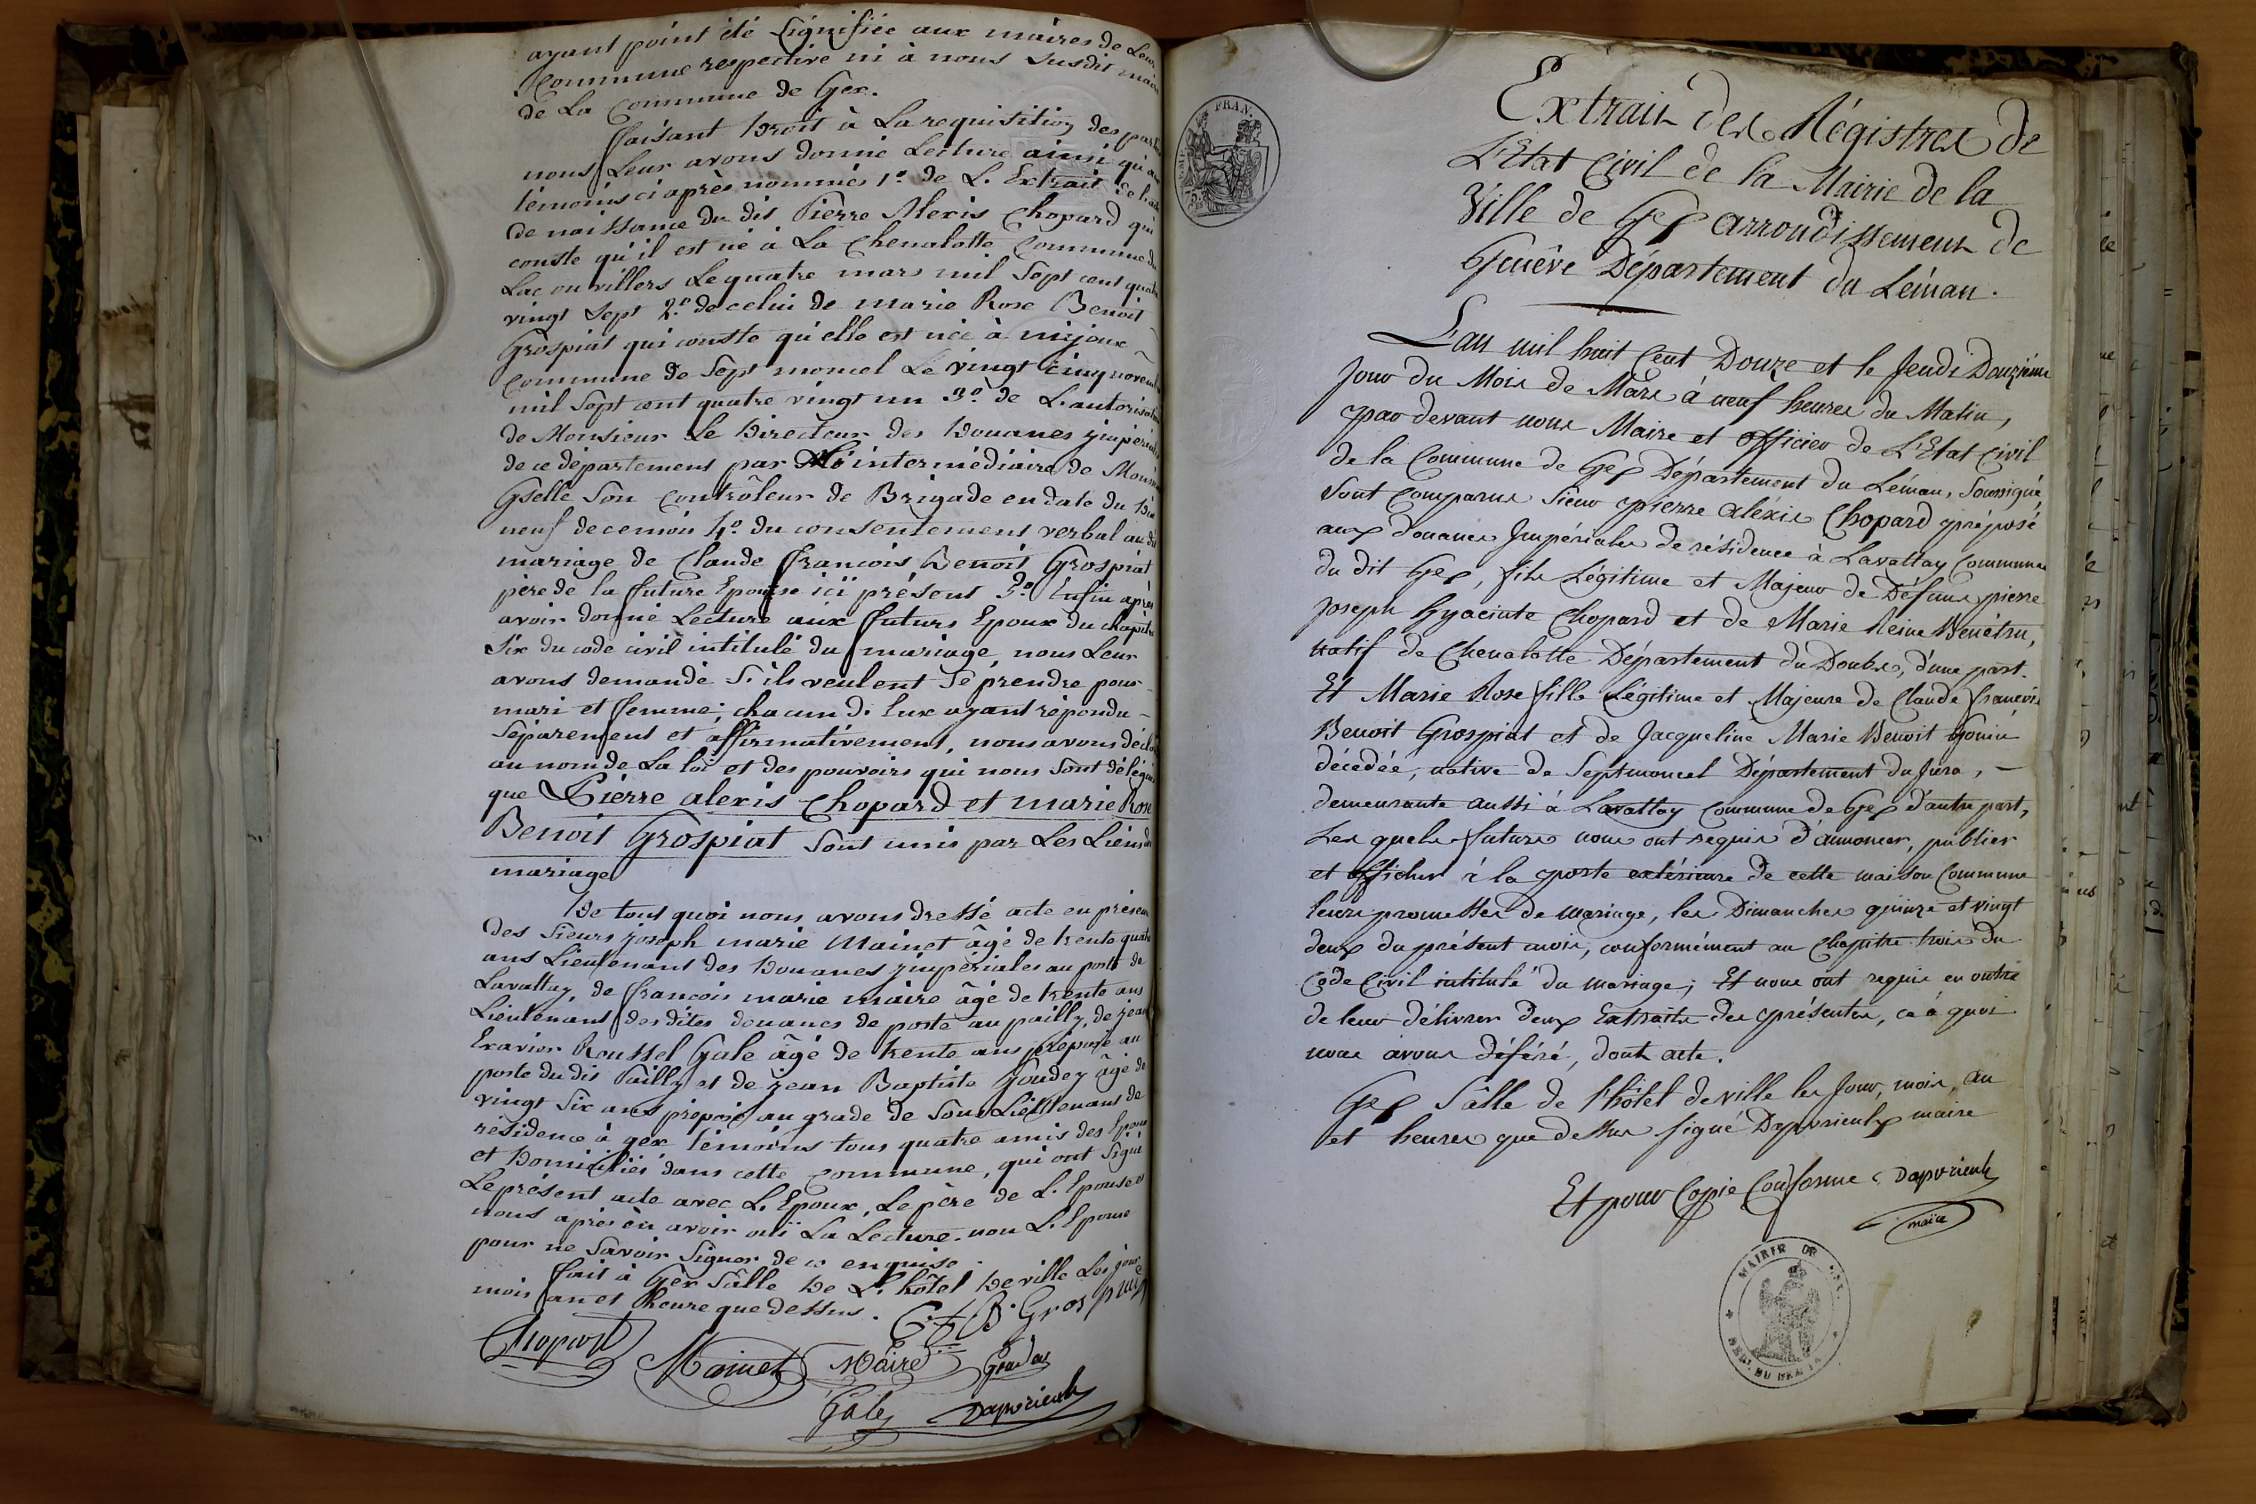 ayant point été signifiée aux maires de Leur
Commune respective ni à nous susdit maire
de La Commune de Gex.
faisant Droit à La requisition des parties
nous Leur avons donné Lecture ainsi qu'aux
témoins ci après nommés 1.º de L. Extrait de L'acte
de naissance du dit Pierre Alexis Chopard qui
conste qu'il est né à La Chenalotte Commune du
Lac ou villers Le quatre mars mil Sept cent quatre
vingt Sept 2.º de celui de marie Rose Benoit
Grospiat qui conste qu'elle est née à mijoux
commune de Sept moncel Le vingt cinq novembre
mil Sept cent quatre vingt un 3.º de L'autorisation
de Monsieur Le Directeur des Douanes impériales
de ce département par L'intermédiaire de Monsieur
Gselle Son Contrôleur de Brigade en date du Dix
neuf de ce mois 4.º du consentement verbal au dit
mariage de Claude françois Benoit Grospiat
père de la future Epouse ici présent 5.º Enfin après
avoir donné Lecture aux futurs Epoux du chapitre
Six du code civil intitulé du mariage, nous Leur
avons demandé S'ils veulent Se prendre pour
mari et femme; chacun d'Eux ayant répondu
Séparement et affirmativement, nous avons déclaré
au nom de La loi et des pouvoirs qui nous Sont délégués
que Pierre alexis Chopard et marie Rose
Benoit Grospiat Sont unis par Les Liens du
mariage
De tout quoi nous avons dressé acte en présence
des Sieurs joseph marie Mainet âgé de trente quatre
ans Lieutenant des Douanes impériales au poste de
Lavattay, de françois marie maire âgé de trente ans
Lieutenant des dites douanes de poste au pailly, de jean
Exavier Roussel Gale âgé de trente ans préposé au
poste du dit Pailly et de jean Baptiste Goudey âgé de
vingt Six ans préposé au grade de Sous Lieutenant de
résidence à gex témoins tous quatre amis des Epoux
et Domiciliés dans cette commune, qui ont Signé
Le présent acte avec L. Epoux, Le père de L. Epouse et
nous après en avoir ouï La Lecture. non L. Epouse
pour ne Savoir Signer de ce enquise.
fait à Gex Sâlle De L. hôtel De ville Les jour
mois an et heure que dessus. C. f. B. Grospiat
Chopard Mainet Maire
Gale Dapvrieulx
FRAN.
Extrait des Régistres de
L'Etat Civil de la Mairie de la
Ville de Gex arrondissement de
Genêve Département du Léman.
L'an mil huit Cent Douze et le Jeudi Douzième
Jour du Mois de Mars à neuf heures du Matin,
par devant nous Maire et officier de L'Etat Civil
de la Commune de Gex Département du Léman, Soussigné,
Sont Comparus Sieur pierre aléxis Chopard préposé
aux Douanes Impériales de résidence à Lavattay Commune
du dit Gex, fils Légitime et Majeur de Défunt pierre
Joseph hyacinte Chopard et de Marie Reine Benétru,
natif de Chenalotte Département du Doubs, d'une part.
Et Marie Rose fille Légitime et Majeure de Claude françois
Benoit Grospiat et de Jacqueline Marie Benoit Gonin
décédée, native de Septmoncel Département du Jura, –
demeurante aussi à Lavattay Commune de Gex d'autre part,
Les quels futurs nous ont requis d'annoncer, publier
et afficher à la porte extérieure de cette maison Commune
leurs promesses de mariage, les Dimanches quinze et vingt
deux du présent mois, conformément au Chapitre trois du
Côde Civil intitulé du mariage; Et nous ont requis en outre
de leur délivrer deux Extraits des présentes, ce à quoi
nous avons déféré, dont acte.
Gex Sâlle de l'hôtel de ville les Jour, mois, an
et heures que dessus signé Dapvrieulx maire
Et pour Copie Conforme Dapvrieulx
maire
MAIRIE DE GEX.
DEPT. DU LEMAN